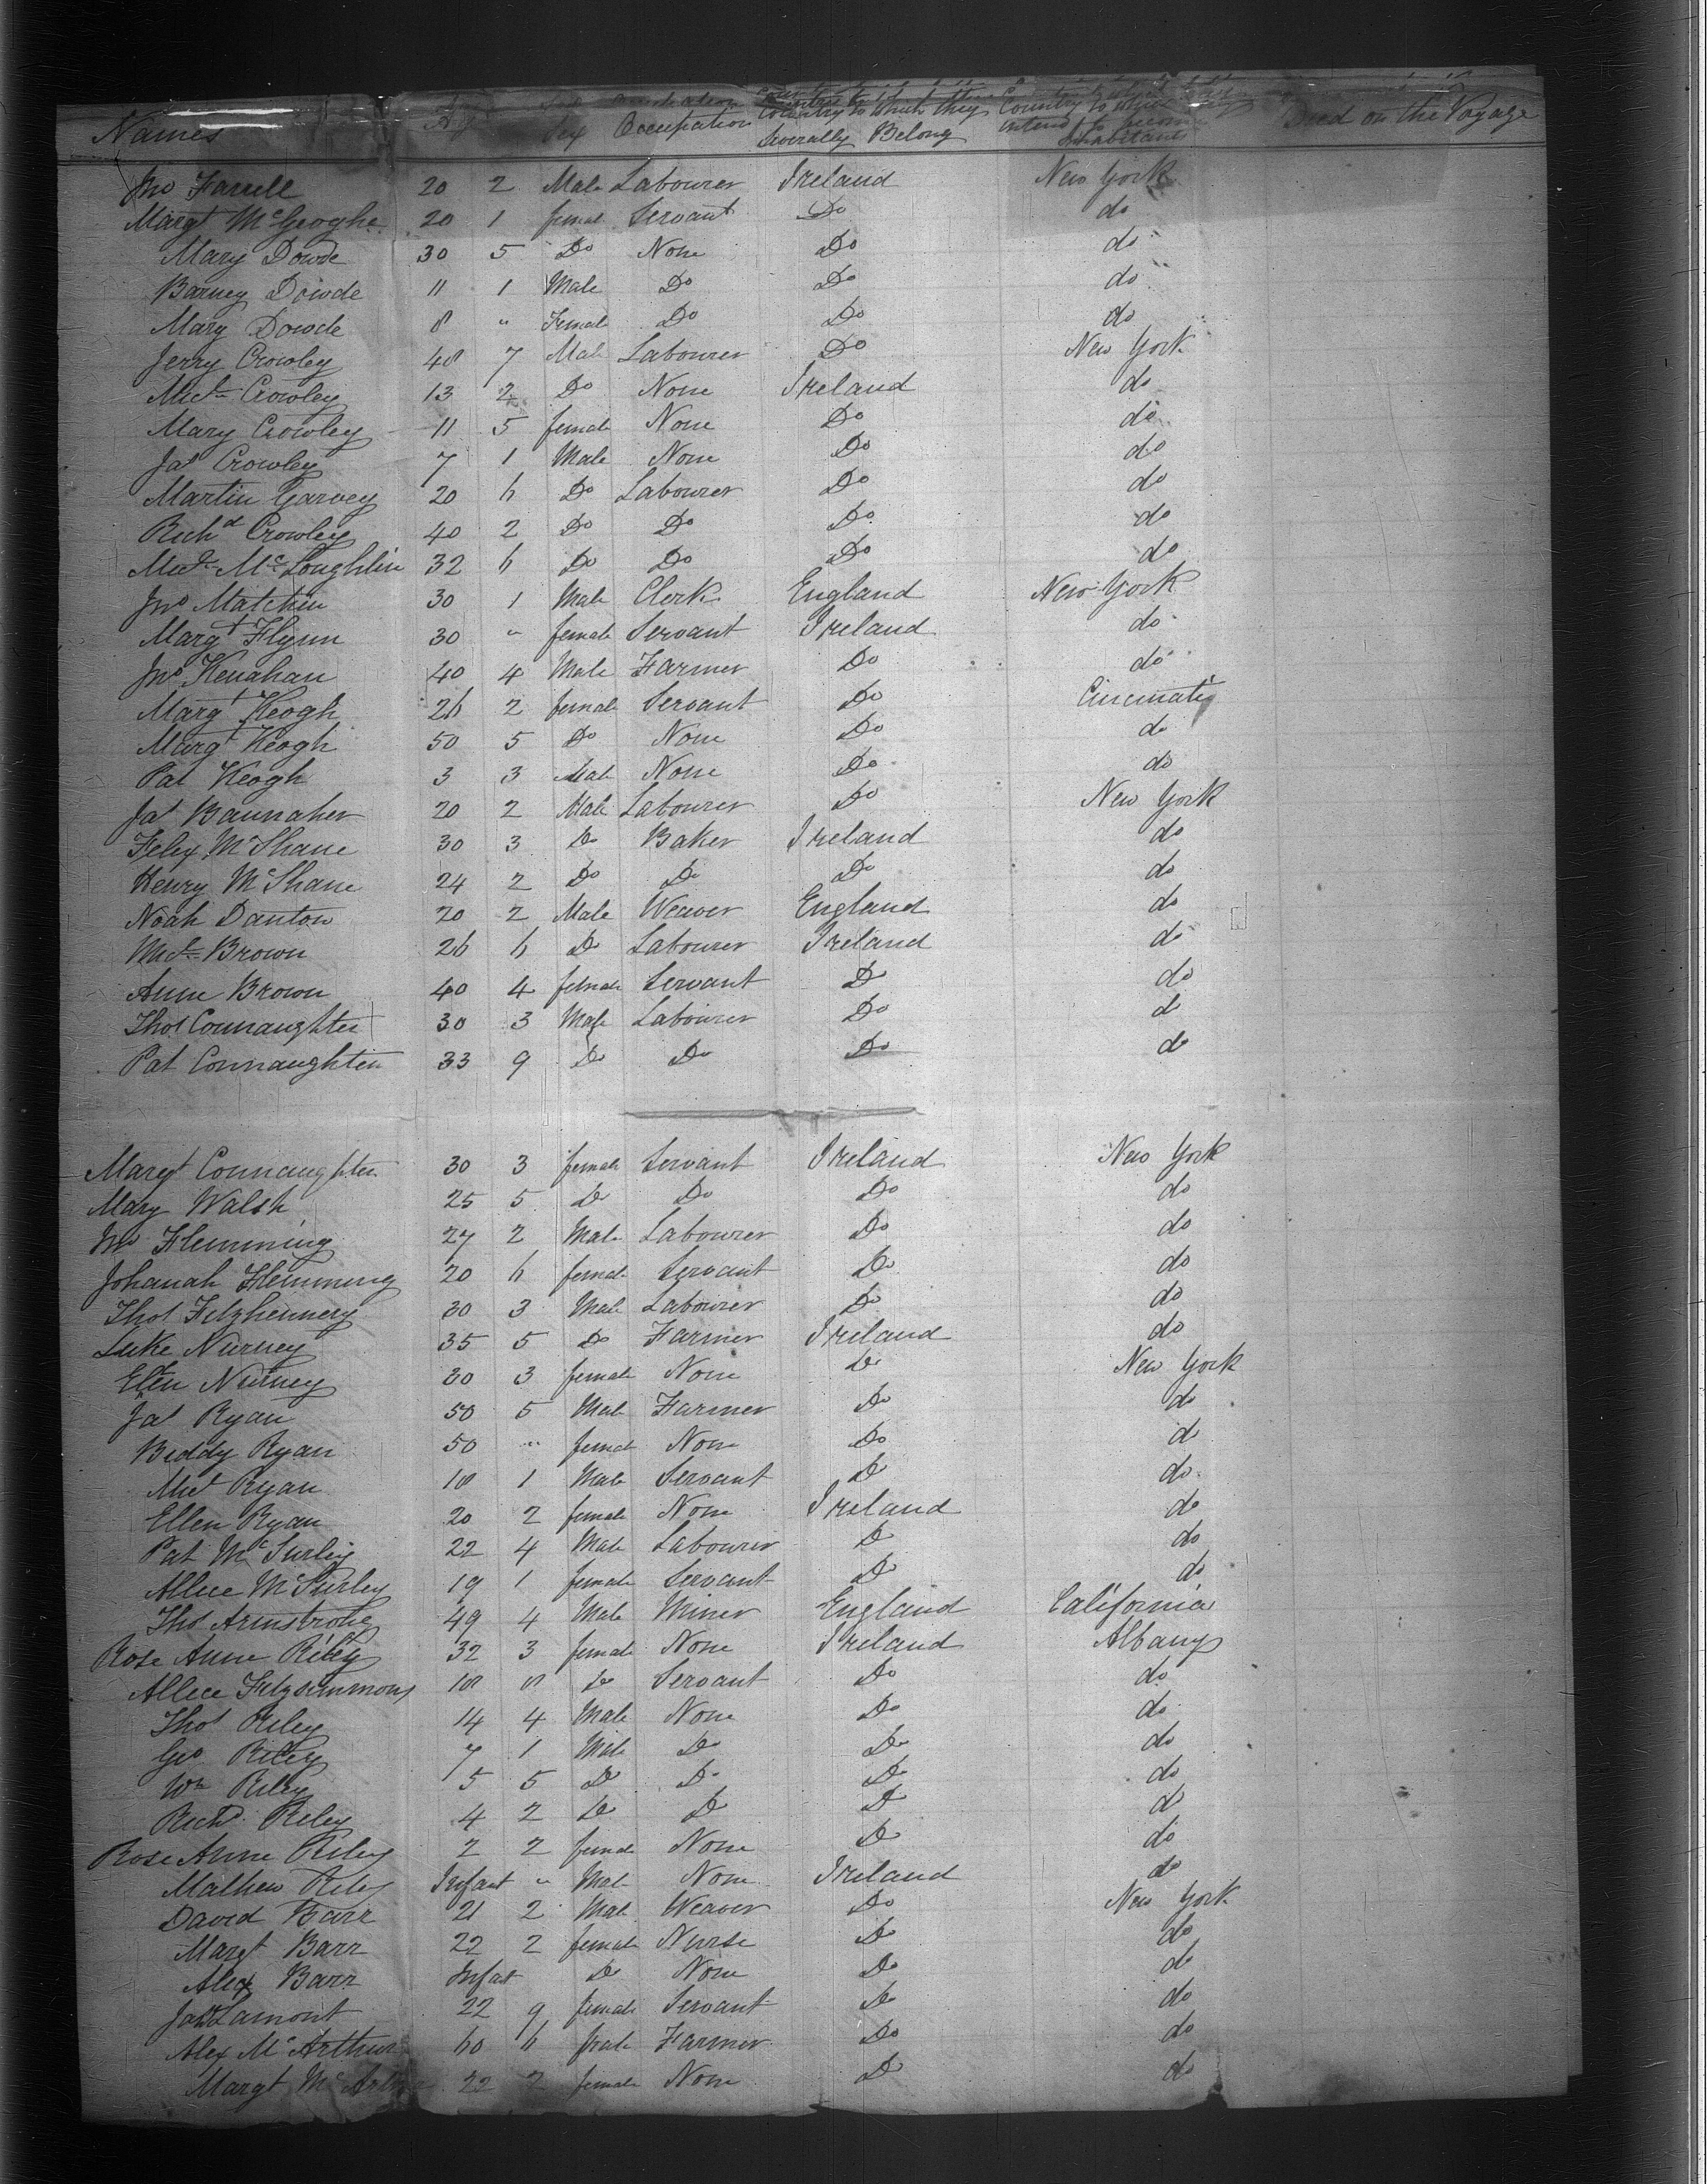 Names Age Sex Occupation Country to which they Severally Belong Country to which intend to become Inhabitants Died on the Voyage
Jno Farrell 20 2 Male Labourer Ireland New York
Margt McGeoghe 20 1 female Servant Do do
Mary Dowde 30 5 Do None Do do
Barney Dowde 11 1 Male Do Do do
Mary Dowde 8 " Female Do Do do
Jerry Crowley 48 7 Male Labourer Do New York
Michl Crowley 13 2 Do None Ireland do
Mary Crowley 11 5 female None Do do
Jas Crowley 7 1 Male None Do do
Martin Garvey 20 6 Do Labourer Do do
Richd Crowley 40 2 Do Do Do do
Michl McLoughlin 32 6 Do Do Do do
Jno Matchin 30 1 Male Clerk England New York
Margt Flynn 30 " female Servant Ireland do
Jno Kenahan 40 4 Male Farmer Do do
Margt Keogh 26 2 female Servant Do Cincinnati
Margt Keogh 50 5 Do None Do do
Pat Keogh 3 3 Male None Do do
Jas Baunaher 20 2 Male Labourer Do New York
Feley McShane 30 3 Do Baker Ireland do
Henry McShane 24 2 Do Do Do do
Noah Danton 20 2 Male Weaver England do
Michl Brown 26 6 Do Labourer Ireland do
Anne Brown 40 4 female Servant Do do
Thos Connaughten 30 3 Male Labourer Do do
Pat Connaughten 33 9 Do Do Do do
Margt Connaughten 30 3 female Servant Ireland New York
Mary Walsh 25 5 Do Do Do do
Jno Flemming 27 2 Male Labourer Do do
Johanah Flemming 20 6 female Servant Do do
Thos Fitzhennery 30 3 Male Labourer Do do
Luke Nurney 35 5 Do Farmer Ireland do
Ellen Nurney 30 3 female None Do New York
Jas Ryan 50 5 Male Farmer Do do
Biddy Ryan 50 " female None Do do
Micl Ryan 18 1 Male Servant Do do
Ellen Ryan 20 2 female None Ireland do
Pat McSurley 22 4 Male Labourer Do do
Allice McSurley 19 1 female Servant Do do
Thos Armstrong 49 4 Male Miner England California
Rose Anne Riley 32 3 female None Ireland Albany
Allice Fitzsimmons 18 8 Do Servant Do do
Thos Riley 14 4 Male None Do do
Geo Riley 7 1 Male Do Do do
Wm Riley 5 5 Do Do Do do
Richd Riley 4 2 Do Do Do do
Rose Anne Riley 2 2 female None Do do
Mathew Riley Infant " Male None Ireland do
David Barr 21 2 Male Weaver Do New York
Margt Barr 22 2 female Nurse Do do
Alex Barr Infant Do None Do do
Lamont 22 9 female Servant Do do
Alex McArthur 60 6 Male Farmer Do do
Margt McArthur 22 2 female None Do do